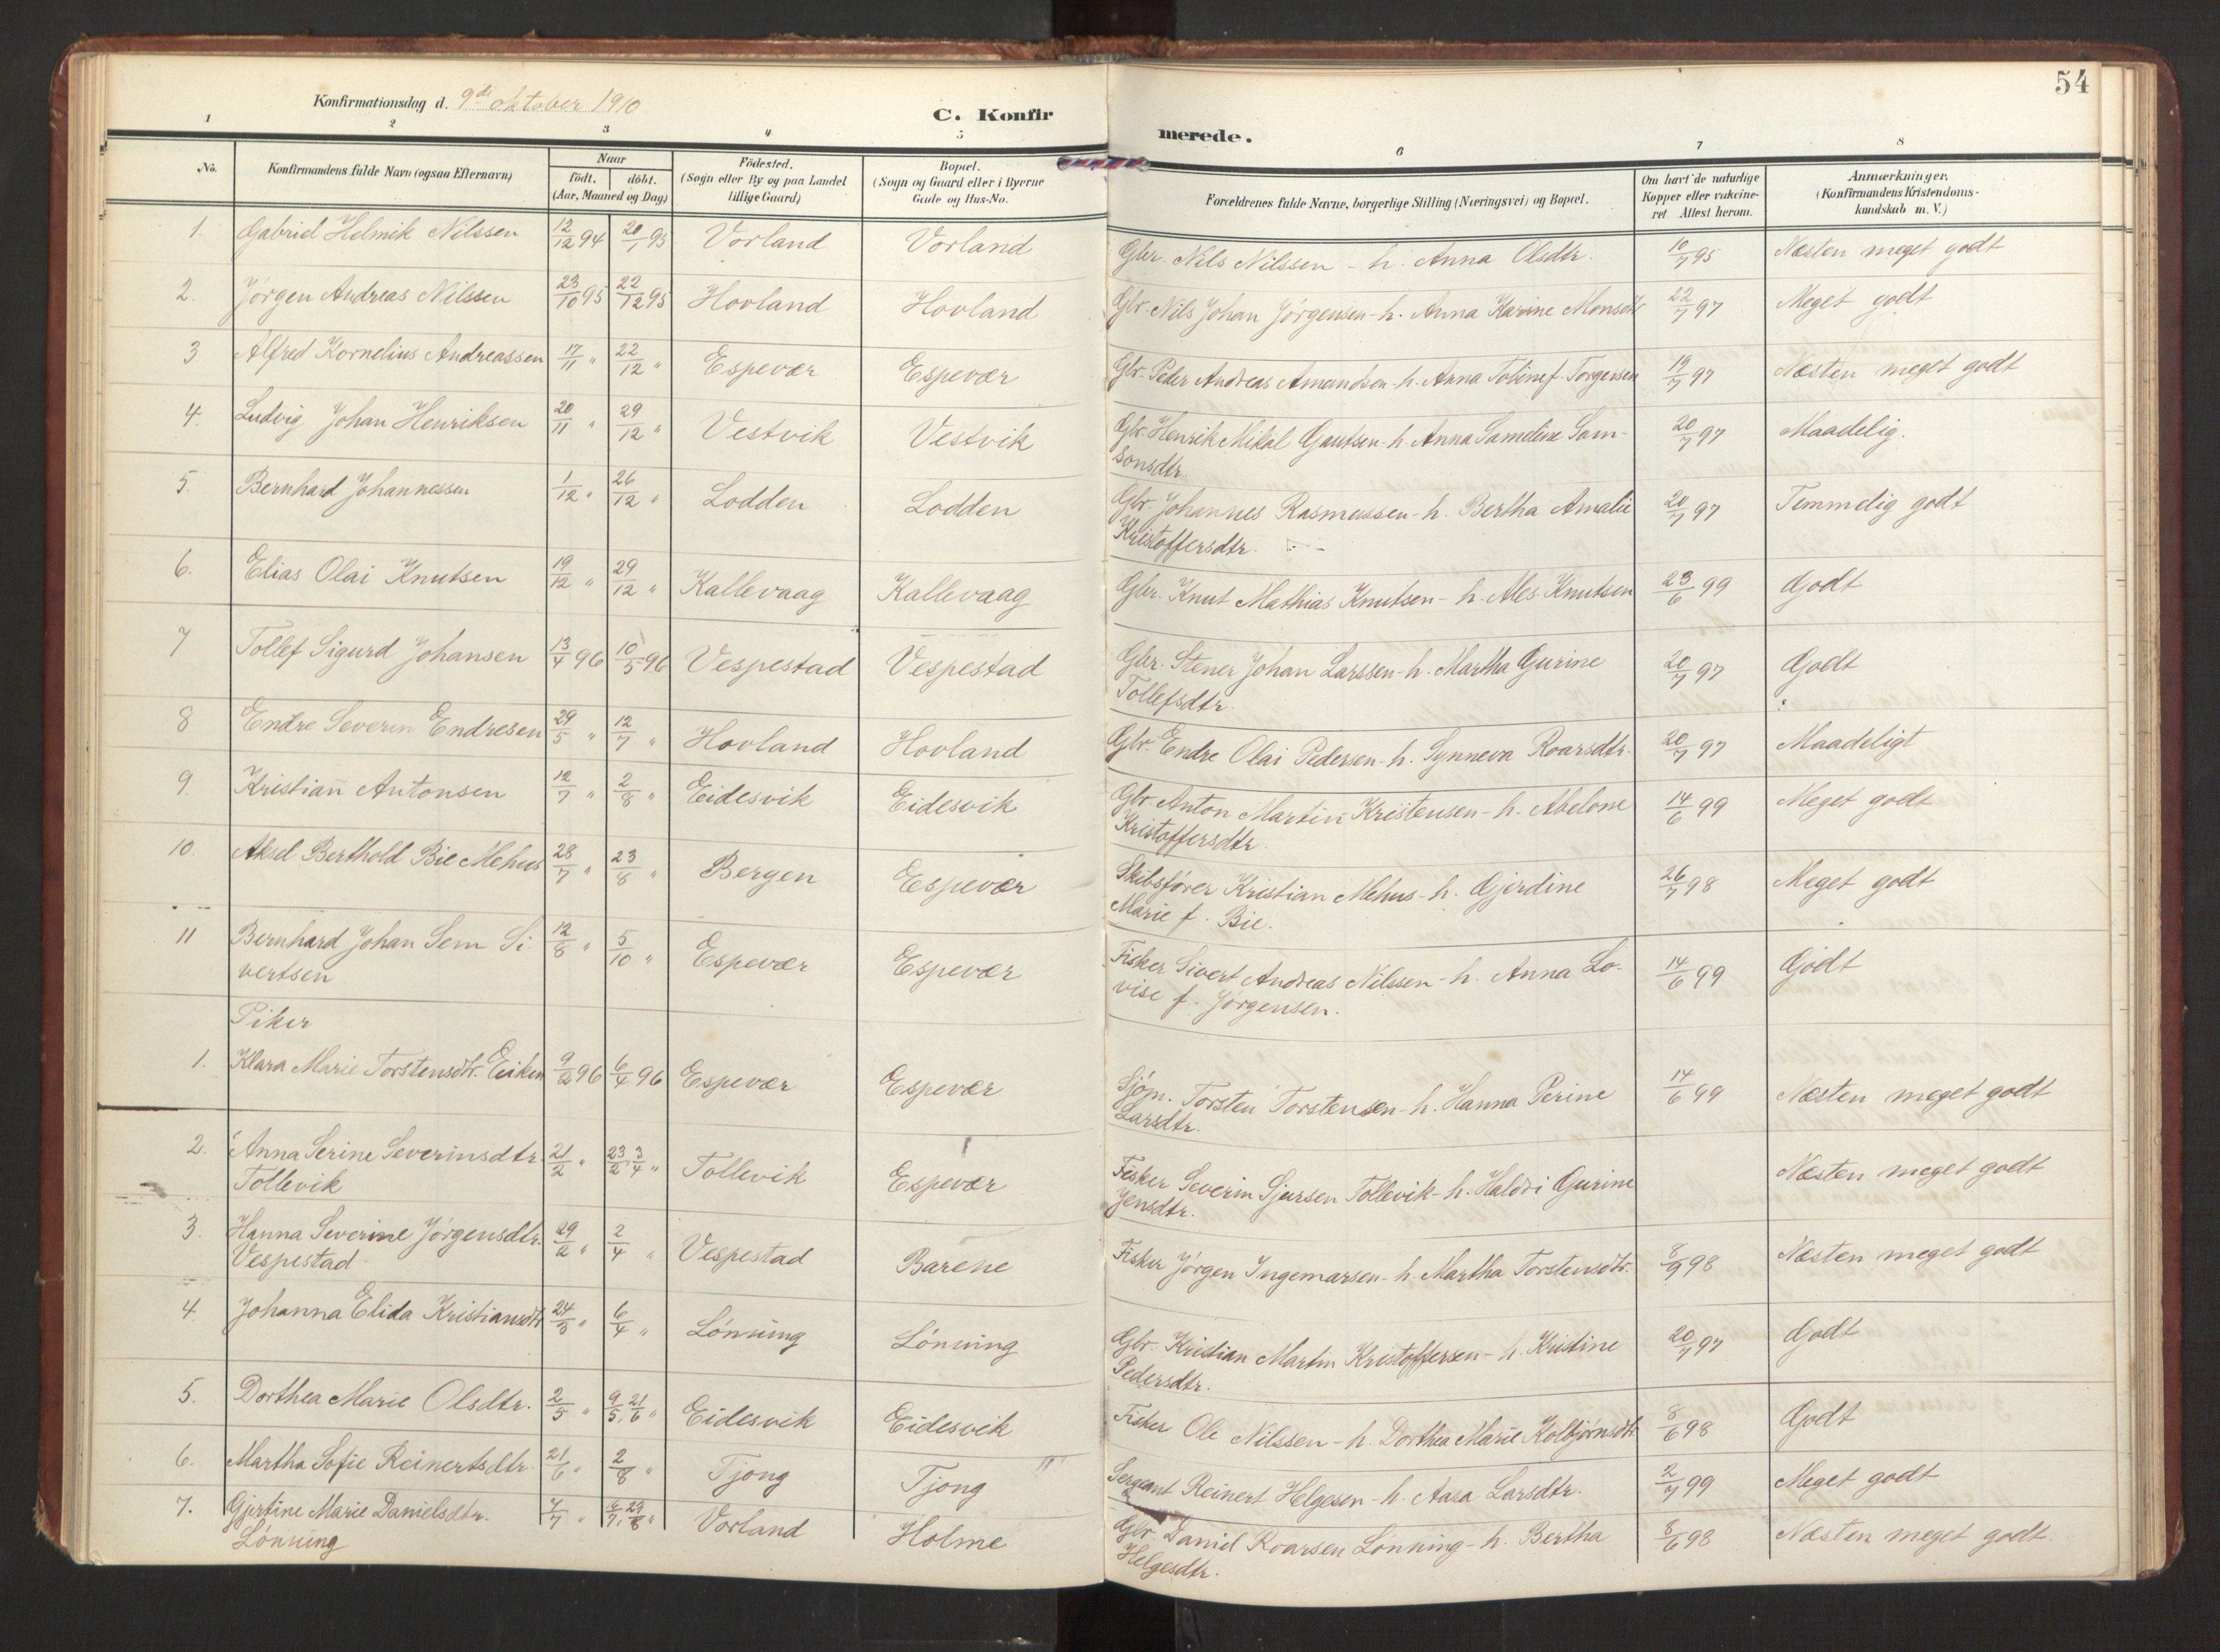 54
Konfirmationsdag d. 9de oktober 1910
C. Konfirmerede.
1 2 3 4 5 6 7 8
No. | Konfirmandens fulde Navn (ogsaa Efternavn) | Naar født. døbt. (Aar, Maaned og Dag) | Födested. (Sogn eller By og paa Landet tillige Gaard) | Bopæl. (Sogn og Gaard eller i Byerne Gade og Hus-No. | Forældrenes fulde Navne, borgerlige Stilling (Næringsvei) og Bopæl. | Om havt de naturlige Kopper eller vakcineret Attest herom. | Anmærkninger. (Konfirmandens Kristendomskundskab m. V.)
1. Gabriel Helmik Nilssen 12/12 94 20/1 95 Vorland Vorland Gbr. Nils Nilssen - h. Anna Olsdtr. 10/7 95 Næsten meget godt
2. Jørgen Andreas Nilssen 23/10 95 22/12 95 Hovland Hovland Gbr. Nils Johan Jørgensen - h. Anna Karine Monsdtr 22/7 97 Meget godt
3. Alfred Kornelius Andreassen 17/11 " 22/12 " Espevær Espevær Gbr. Peder Andreas Amundsen - h. Anna Toline f. Torgersen 19/7 97 Næsten meget godt
4. Ludvig Johan Henriksen 20/11 " 29/12 " Vestvik Vestvik Gbr. Henrik Mikal Gautsen - h. Anna Sameline Sam-
sonsdtr. 20/7 97 Maadelig.
5. Bernhard Johannessen 1/12 " 26/12 " Lodden Lodden Gbr. Johannes Rasmussen - h. Bertha Amalie
Kristoffersdtr. 20/7 97 Temmelig godt
6. Elias Olai Knutsen 19/12 " 29/12 " Kallevaag Kallevaag Gbr. Knut Mathias Knutsen - h. Ales Knutsen 23/6 99 Godt
7 Tollef Sigurd Johansen 13/4 96 10/5 96 Vespestad Vespestad Gbr. Stener Johan Larssen - h. Martha Gurine
Tollefsdtr. 20/7 97 Godt
8 Endre Severin Endresen 29/5 " 12/7 " Hovland Hovland Gbr. Endre Olai Pedersen - h. Synneva Roarsdtr. 20/7 97 Maadeligt
9. Kristian Antonsen 12/7 " 2/8 " Eidesvik Eidesvik Gbr. Anton Martin Kristensen - h. Abelone
Kristoffersdtr. 14/6 99 Meget godt
10. Aksel Berthold Bie Mehus 28/7 " 23/8 " Bergen Espevær Skibsfører Kristian Mehus - h. Gjerdine
Marie f. Bie. 26/7 98 Meget godt
11 Bernhard Johan Sem Si-
vertsen 12/8 " 5/10 " Espevær Espevær Fisker Sivert Andreas Nilssen - h. Anna Lo-
vise f. Jørgensen. 14/6 99 Godt
Piker
1. Klara Marie Torstensdtr. Eiken 9/2 96 6/4 96 Espevær Espevær Sjøm. Torsten Torstensen - h. Hanna Perine
Larsdtr. 14/6 99 Næsten meget godt
2. Anna Serine Severinsdtr.
Tollevik 21/2 " 23/2, 3/4 " Tollevik Espevær Fisker Severin Sjursen Tollevik - h. Haldri Gurine
Jensdtr. Næsten meget godt
3. Hanna Severine Jørgensdtr.
Vespestad. 29/2 " 2/4 " Vespestad Barene Fisker Jørgen Ingemarsen - h. Martha Torstensdtr. 8/9 98 Næsten meget godt
4. Johanna Elida Kristiansdtr 24/3 " 6/4 " Lønning Lønning Gbr. Kristian Martin Kristoffersen - h. Kristine
Pedersdtr. 20/7 97 Godt
5. Dorthea Marie Olsdtr. 2/5 " 9/5, 21/6 " Eidesvik Eidesvik Fisker Ole Nilssen - h. Dorthea Marie Kolbjørnsdtr 8/6 98 Godt
6. Martha Sofie Reinertsdtr. 21/6 " 2/8 " Tjong Tjong Sergeant Reinert Helgesen - h. Aasa Larsdtr. 2/7 99 Meget godt
7. Gjertine Marie Danielsdtr.
Lønning 4/7 " 23/8 " Vorland Holme Gbr. Daniel Roarsen Lønning - h. Bertha
Helgesdtr. 8/6 98 Næsten meget godt.